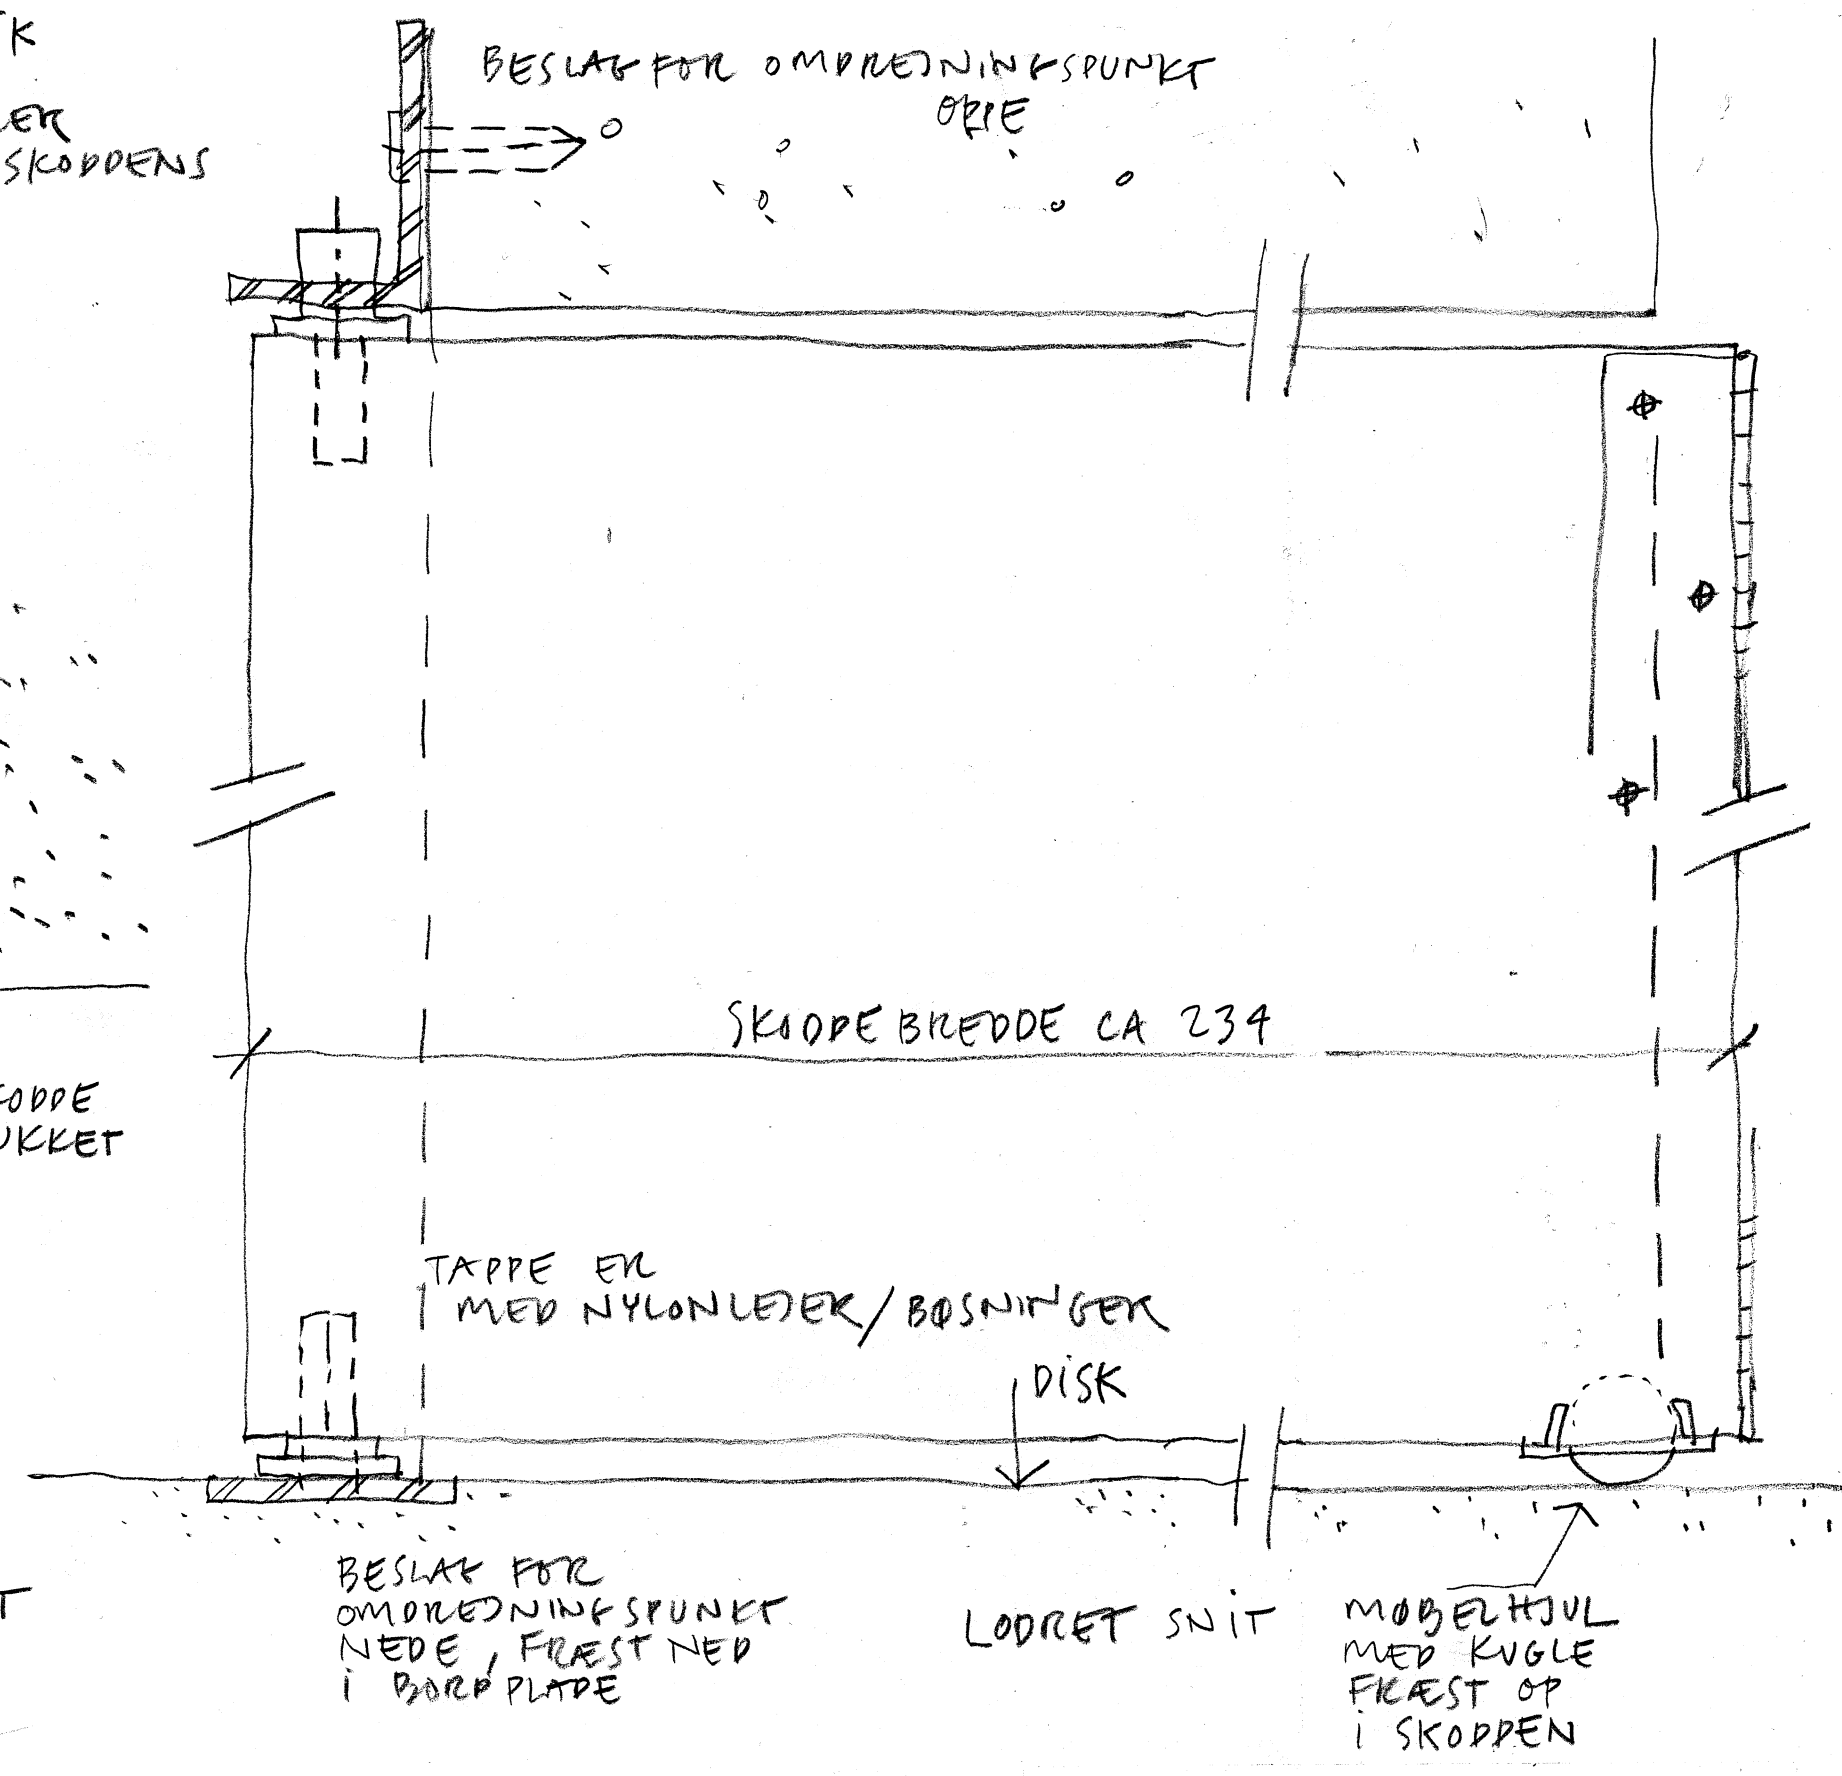 K
BESLAG FOR OMDREJNINGSPUNKT
OPPE
ER
SKODDENS
SKODDEBREDDE CA 234
ODDE
UKKET
TAPPE ER
MED NYLONLEJER/BØSNINGER
DISK
BESLAG FOR
OMDREJNINGSPUNKT
NEDE, FRÆST NED
i BORDPLADE
T
LODRET SNIT
MØBELHJUL
MED KUGLE
FRÆST OP
i SKODDEN